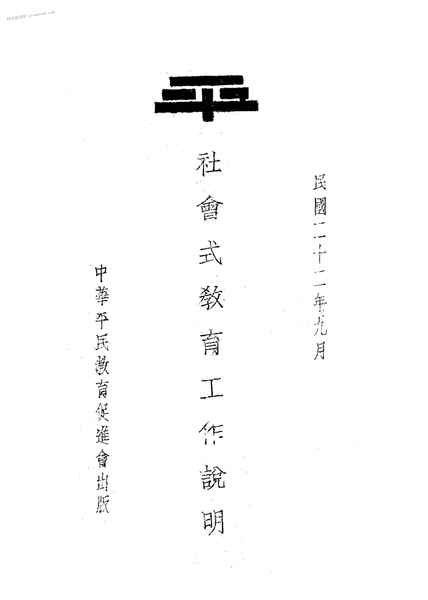 民國二十二年九月
平
社會式教育工作說明
中華平民教育促進會出版